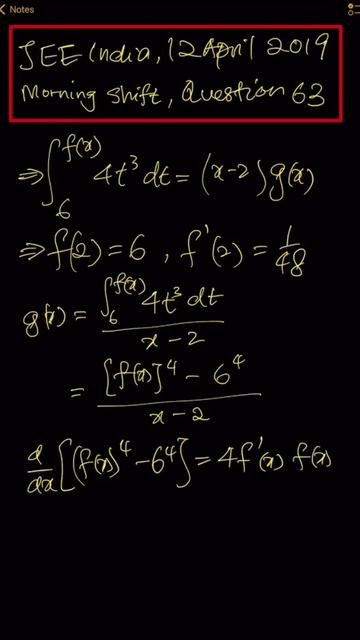 Notes
JEE India, 12 April 2019
Morning Shift, Question 63
⇒∫₆^{f(x)} 4t³ dt = (x-2) g(x)
⇒ f(2) = 6, f'(2) = 1/48
g(x) = ∫₆^{f(x)} 4t³ dt / x-2
= [f(x)]⁴ - 6⁴ / x-2
d/dx [(f(x))⁴ - 6⁴] = 4f'(x) f(x)